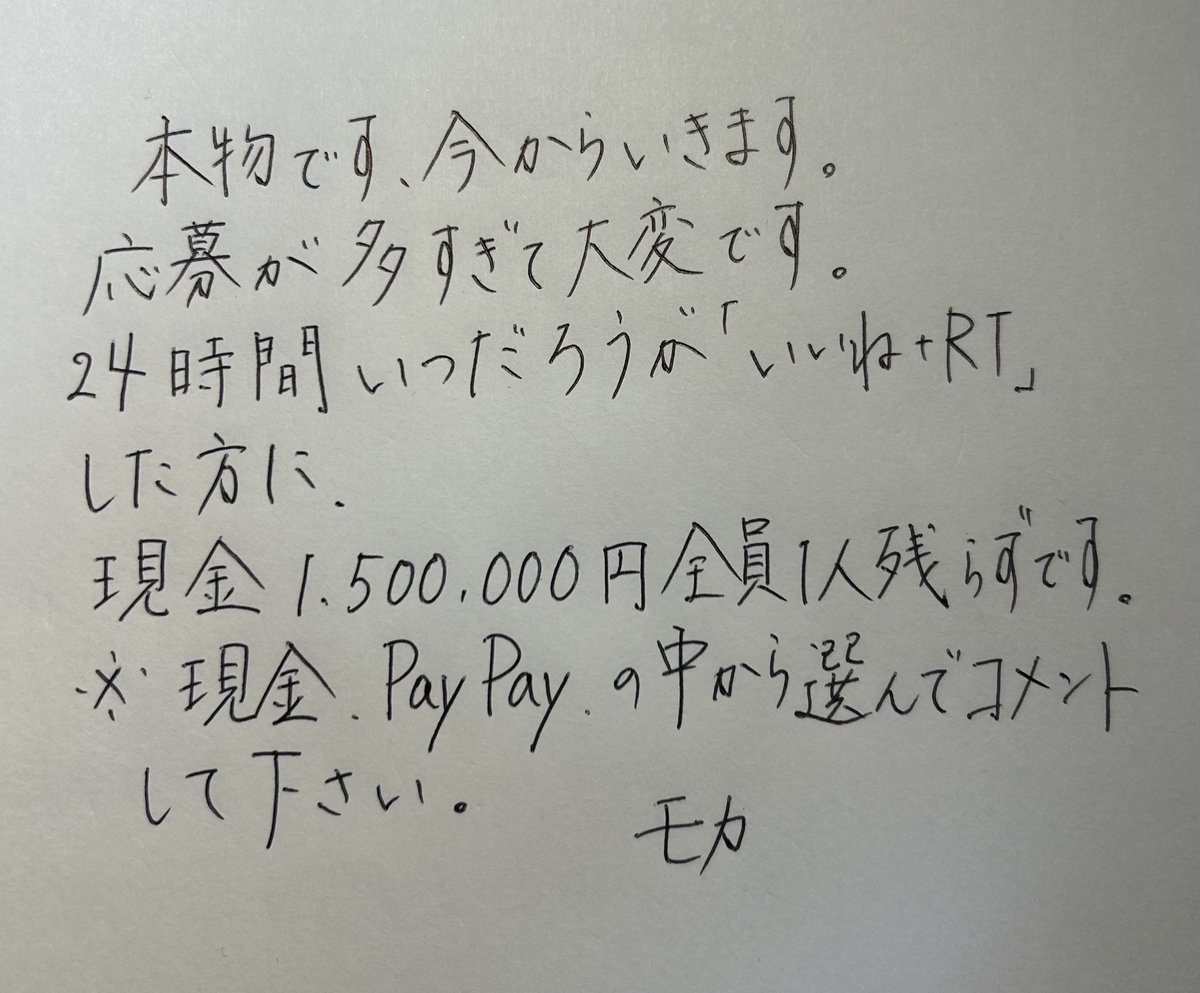 本物です、今からいきます。
応募が多すぎて大変です。
24時間いつだろうが「いいね+RT」
した方に、
現金1.500.000円全員1人残らずです。
※現金、PayPay、の中から選んでコメント
して下さい。
モカ